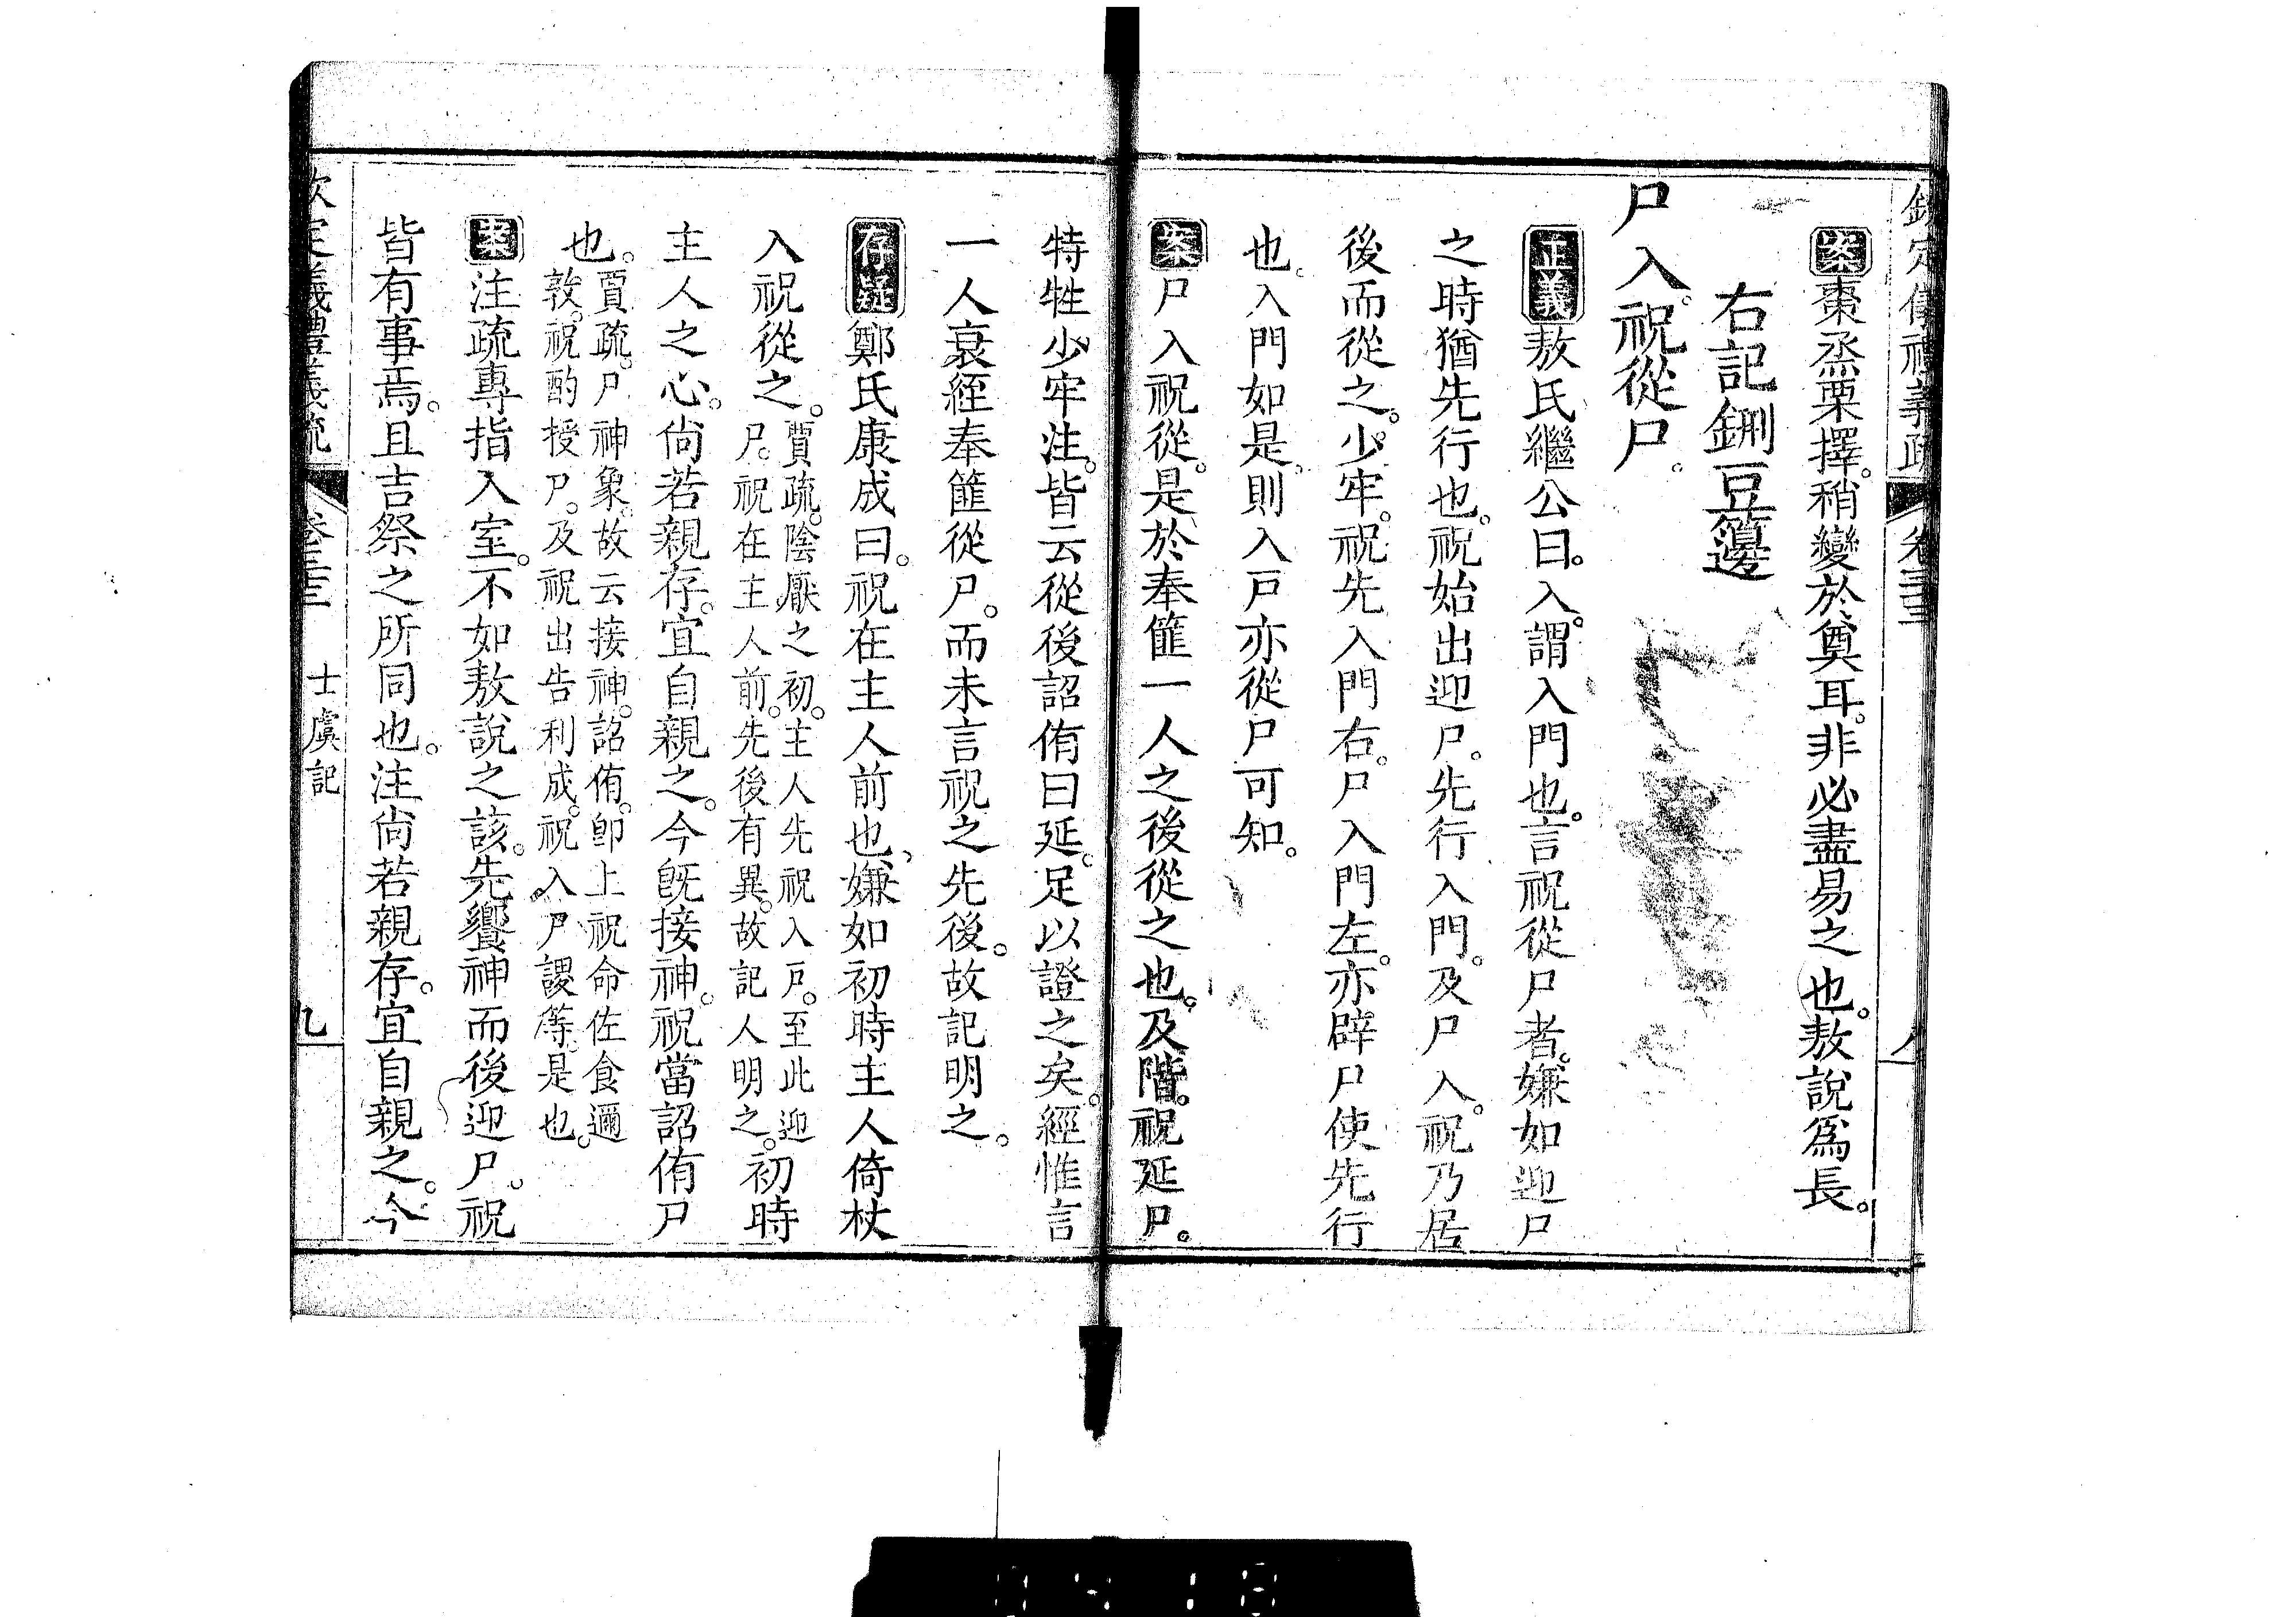 欽定儀禮義疏 卷三十三 八
案棗烝栗擇。稍變於奠耳。非必盡易之也。敖說爲長。
右記鉶豆籩
尸入。祝從尸。
正義敖氏繼公曰。入。謂入門也。言祝從尸者。嫌如迎尸
之時猶先行也。祝始出迎尸。先行入門。及尸入。祝乃居
後而從之。少牢。祝先入門右。尸入門左。亦辟尸使先行
也。入門如是。則入戶亦從尸可知。
案尸入祝從。是於奉篚一人之後從之也。及階。祝延尸。
特牲少牢注。皆云從後詔侑曰延。足以證之矣。經惟言
一人衰絰奉篚從尸。而未言祝之先後。故記明之。
存疑鄭氏康成曰。祝在主人前也。嫌如初時主人倚杖
入祝從之。賈疏。陰厭之初。主人先祝入戶。至此迎
尸。祝在主人前。先後有異。故記人明之。初時
主人之心。尙若親存。宜自親之。今旣接神。祝當詔侑尸
也。賈疏。尸神象。故云接神。詔侑。卽上祝命佐食邇
敦。祝酌授尸。及祝出告利成。祝入尸謖等。是也。
案注疏專指入室。不如敖說之該。先饗神而後迎尸。祝
皆有事焉。且吉祭之所同也。注尙若親存。宜自親之。今
欽定儀禮義疏 卷三十三 士虞記 九